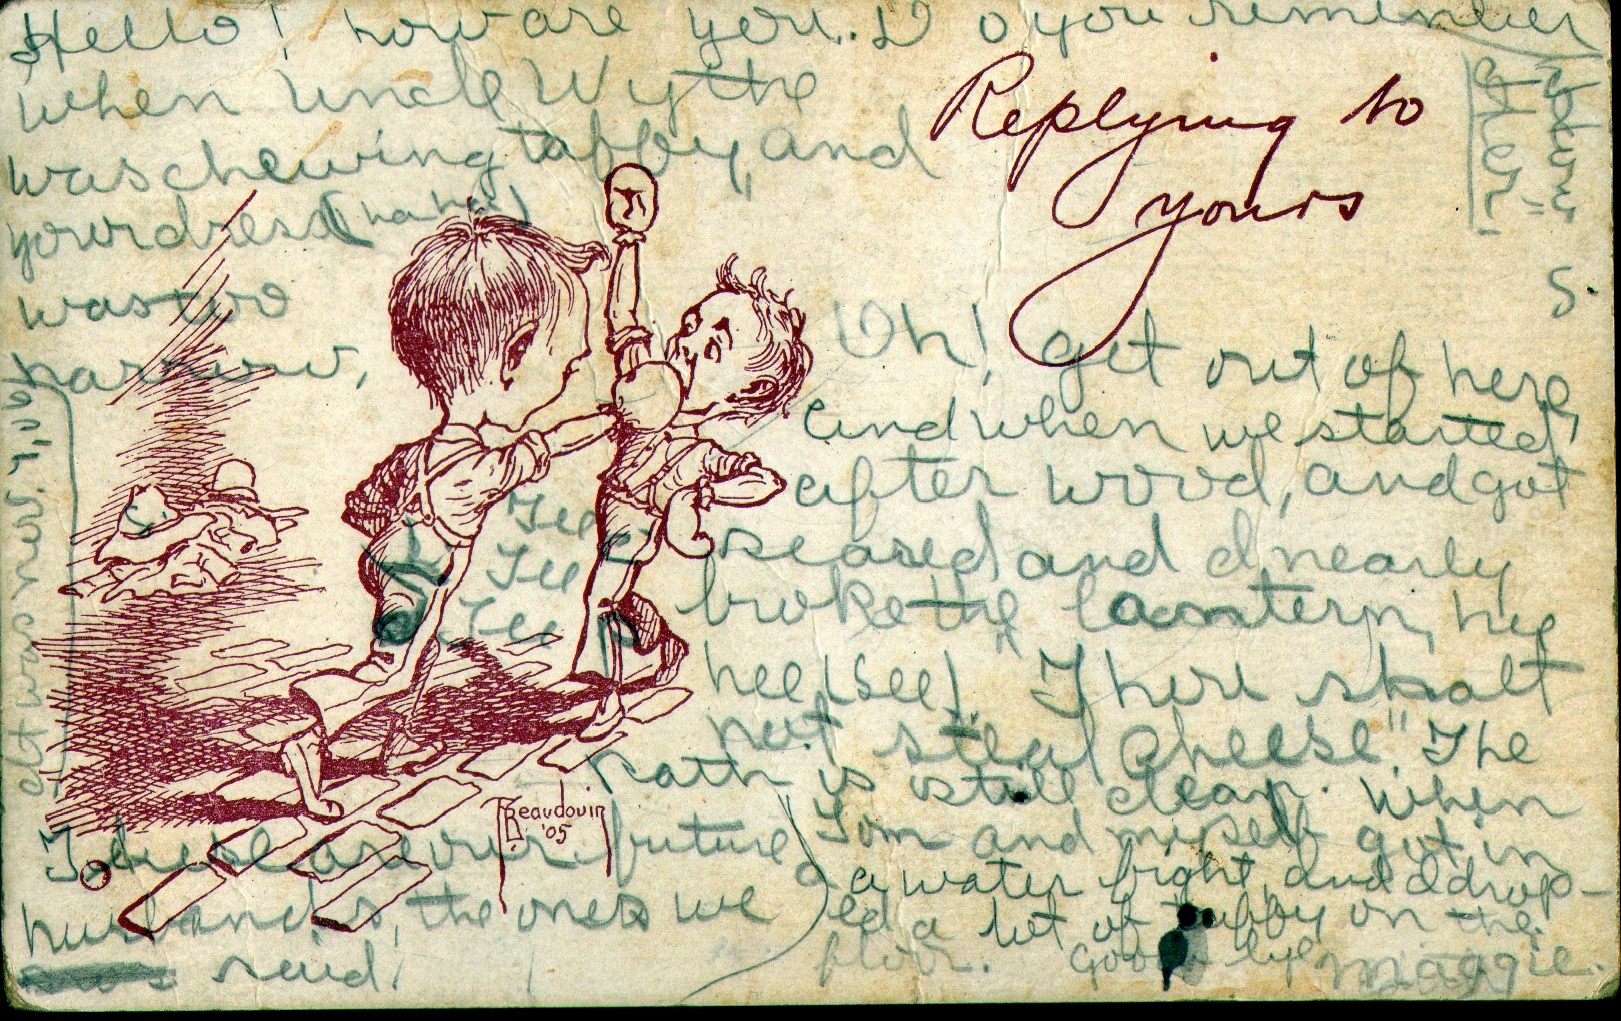 Hello! how are you. Do you remember
when Uncle Wythe
was chewing taffy, and
your dress (ha ha)
was too
narrow,
Replying to
yours
Oh! get out of here,
and when we started
after wood, and got
scared and I nearly
broke the lantern, hee
hee (see). "Thou shalt
not steal cheese" The
path is still clean. When
Tom and miself got in
a water fight, and I drop-
ed a lot of taffy on the
floor. Good bye Maggie.
Tee
Tee
Tee
Beaudouin
'05
These are our future
husbands, the ones we
said.
It was Nov. 7, 06
S.